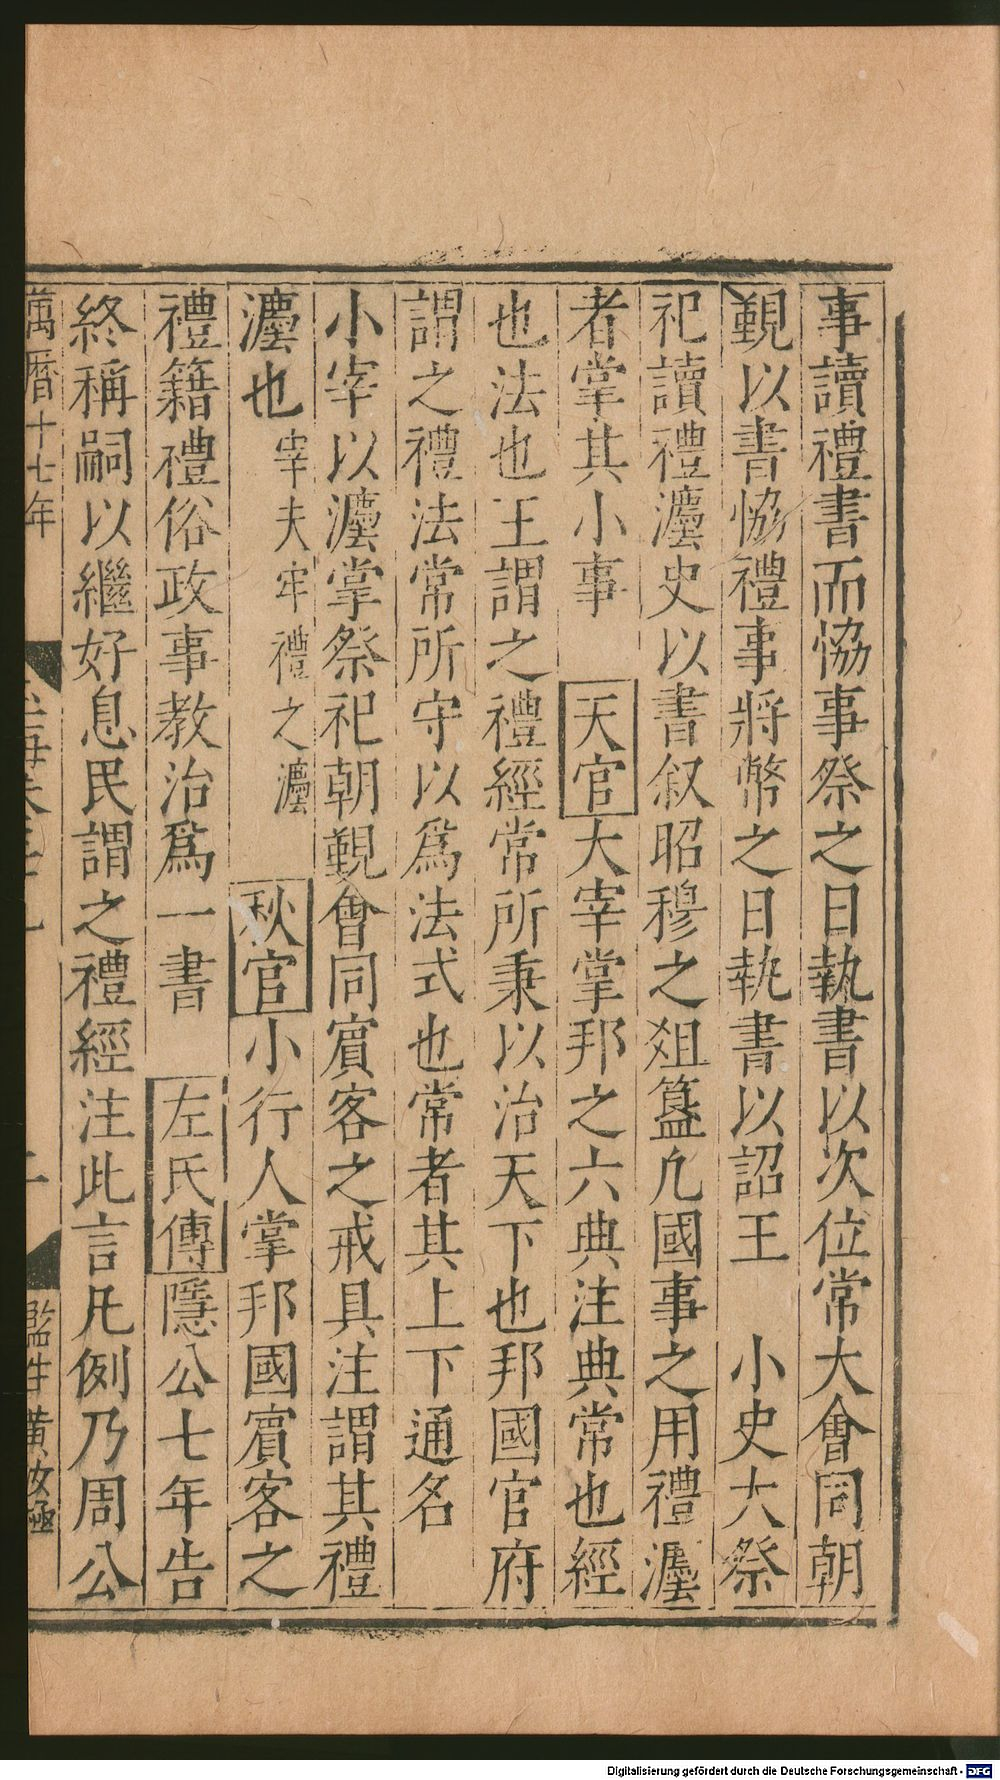 事讀禮書而恊事祭之日執書以次位常大會同朝
覲以書恊禮事將幣之日執書以詔王　小史大祭
祀讀禮灋史以書叙昭穆之俎簋凡國事之用禮灋
者掌其小事　天官大宰掌邦之六典注典常也經
也法也王謂之禮經常所秉以治天下也邦國官府
謂之禮法常所守以爲法式也常者其上下通名
小宰以灋掌祭祀朝覲會同賔客之戒具注謂其禮
灋也宰夫牢禮之灋　秋官小行人掌邦國賔客之
禮籍禮俗政事教治爲一書　左氏傳隱公七年告
終稱嗣以繼好息民謂之禮經注此言凡例乃周公
萬曆十七年
監生黃汝極
Digitalisierung gefördert durch die Deutsche Forschungsgemeinschaft - DFG